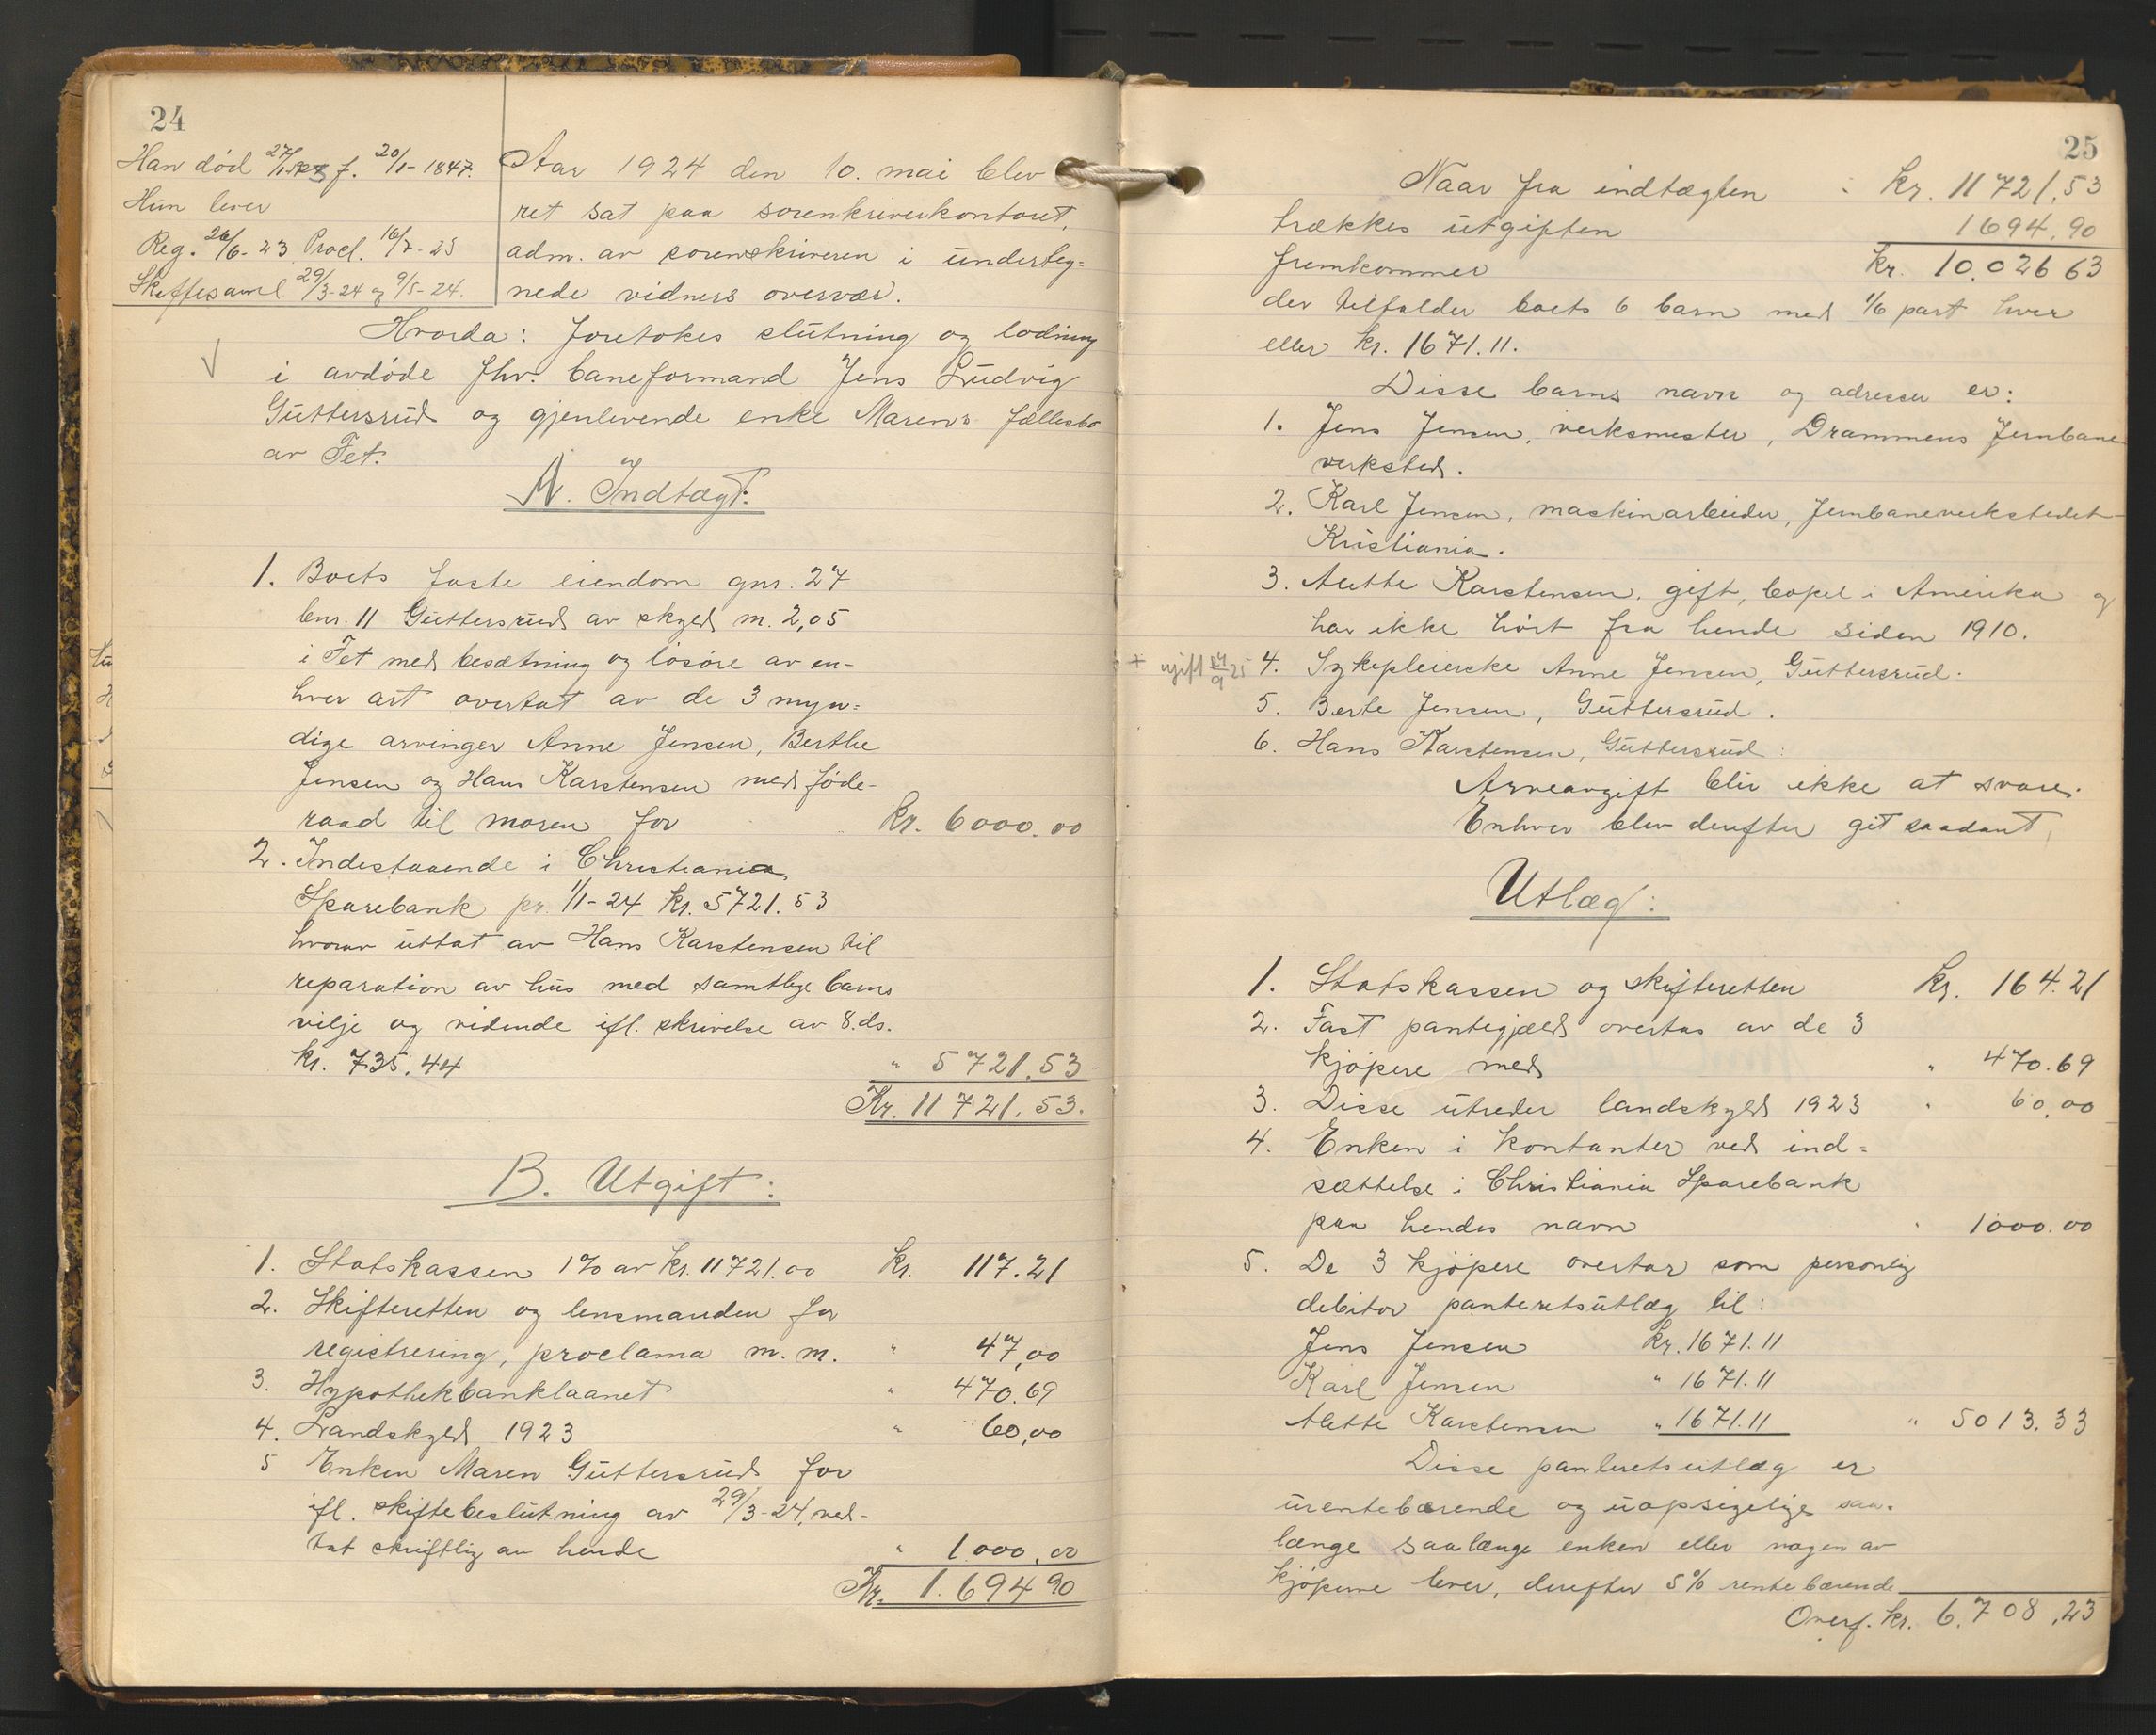 24
Han død 27/1 1923 f. 20/1-1847.
Hun lever
Reg. 26/6-23 Procl. 16/7-23
Skiftesaml 29/3-24 og 9/5-24.
Aar 1924 den 10. mai blev
ret sat paa sorenkriverkontoret,
adm. av sorenskriveren i underteg=
nede vidners overvær.
Hvorda: Foretokes slutning og lodning
i avdøde fhv. baneformand Jens Ludvig
Guttersrud og gjenlevende enke Marens fællesbo
av Fet.
A. Indtægt:
1. Boets faste eiendom gnr. 27
bnr. 11 Guttersrud av skyld m. 2,05
i Fet med besætning og løsøre av en-
hver art overtat av de 3 myn=
dige arvinger Anne Jensen, Berthe
Jensen og Hans Karstensen med føde-
raad til moren for kr. 6000.00
2. Indestaaende i Christiania
Sparebank pr. 1/1-24 kr. 5721.53
hvorav uttat av Hans Karstensen til
reparation av hus med samtlige barns
vilje og vidende ifl. skrivelse av 8. ds.
kr. 735.44 " 5721.53
Kr. 11721.53.
B. Utgift:
1. Statskassen 1% av kr. 11721.00 kr. 117.21
2. Skifteretten og lensmanden for
registrering, proclama m.m. " 47,00
3. Hypothekbanklaanet " 470.69
4. Landskyld 1923 " 60,00
5 Enken Maren Guttersrud for
ifl. skiftebeslutning av 29/3-24, ved-
tat skriftlig av hende " 1.000,00
Kr. 1.694 90
25
Naar fra indtægten kr. 11721,53
trækkes utgiften 1694,90
fremkommer kr. 10.026 63
der tilfalder boets 6 barn med 1/6 part hver
eller kr. 1671.11.
Disse barns navn og adresser er:
1. Jens Jensen, verksmester, Drammens Jernbane-
verksted.
2. Karl Jensen, maskinarbeider, Jernbaneverkstedet
Kristiania.
3. Alette Karstensen, gift, bopel i Amerika og
har ikke hørt fra hende siden 1910.
+ ugift 24/9 25 4. Sykepleierske Anne Jensen, Guttersrud.
5. Berte Jensen, Guttersrud.
6. Hans Karstensen, Guttersrud:
Arveavgift blir ikke at svare.
Enhver blev derefter git saadant
Utlæg:
1. Statskassen og skifteretten kr. 164.21
2. Fast pantegjæld overtas av de 3
kjøpere med " 470.69
3. Disse utreder landskyld 1923 " 60,00
4. Enken i kontanter ved ind=
sættelse i Christiania Sparebank
paa hendes navn " 1000.00
5. De 3 kjøpere overtar som personlig
debitor panteretsutlæg til:
Jens Jensen kr. 1671.11
Karl Jensen " 1671.11
Alette Karstensen " 1671.11 " 5013.33
Disse panteretsutlæg er
urentebærende og uopsigelige saa-
længe saalænge enken eller nogen av
kjøperne lever, derefter 5% rentebærende
Overf. kr. 6.708,23